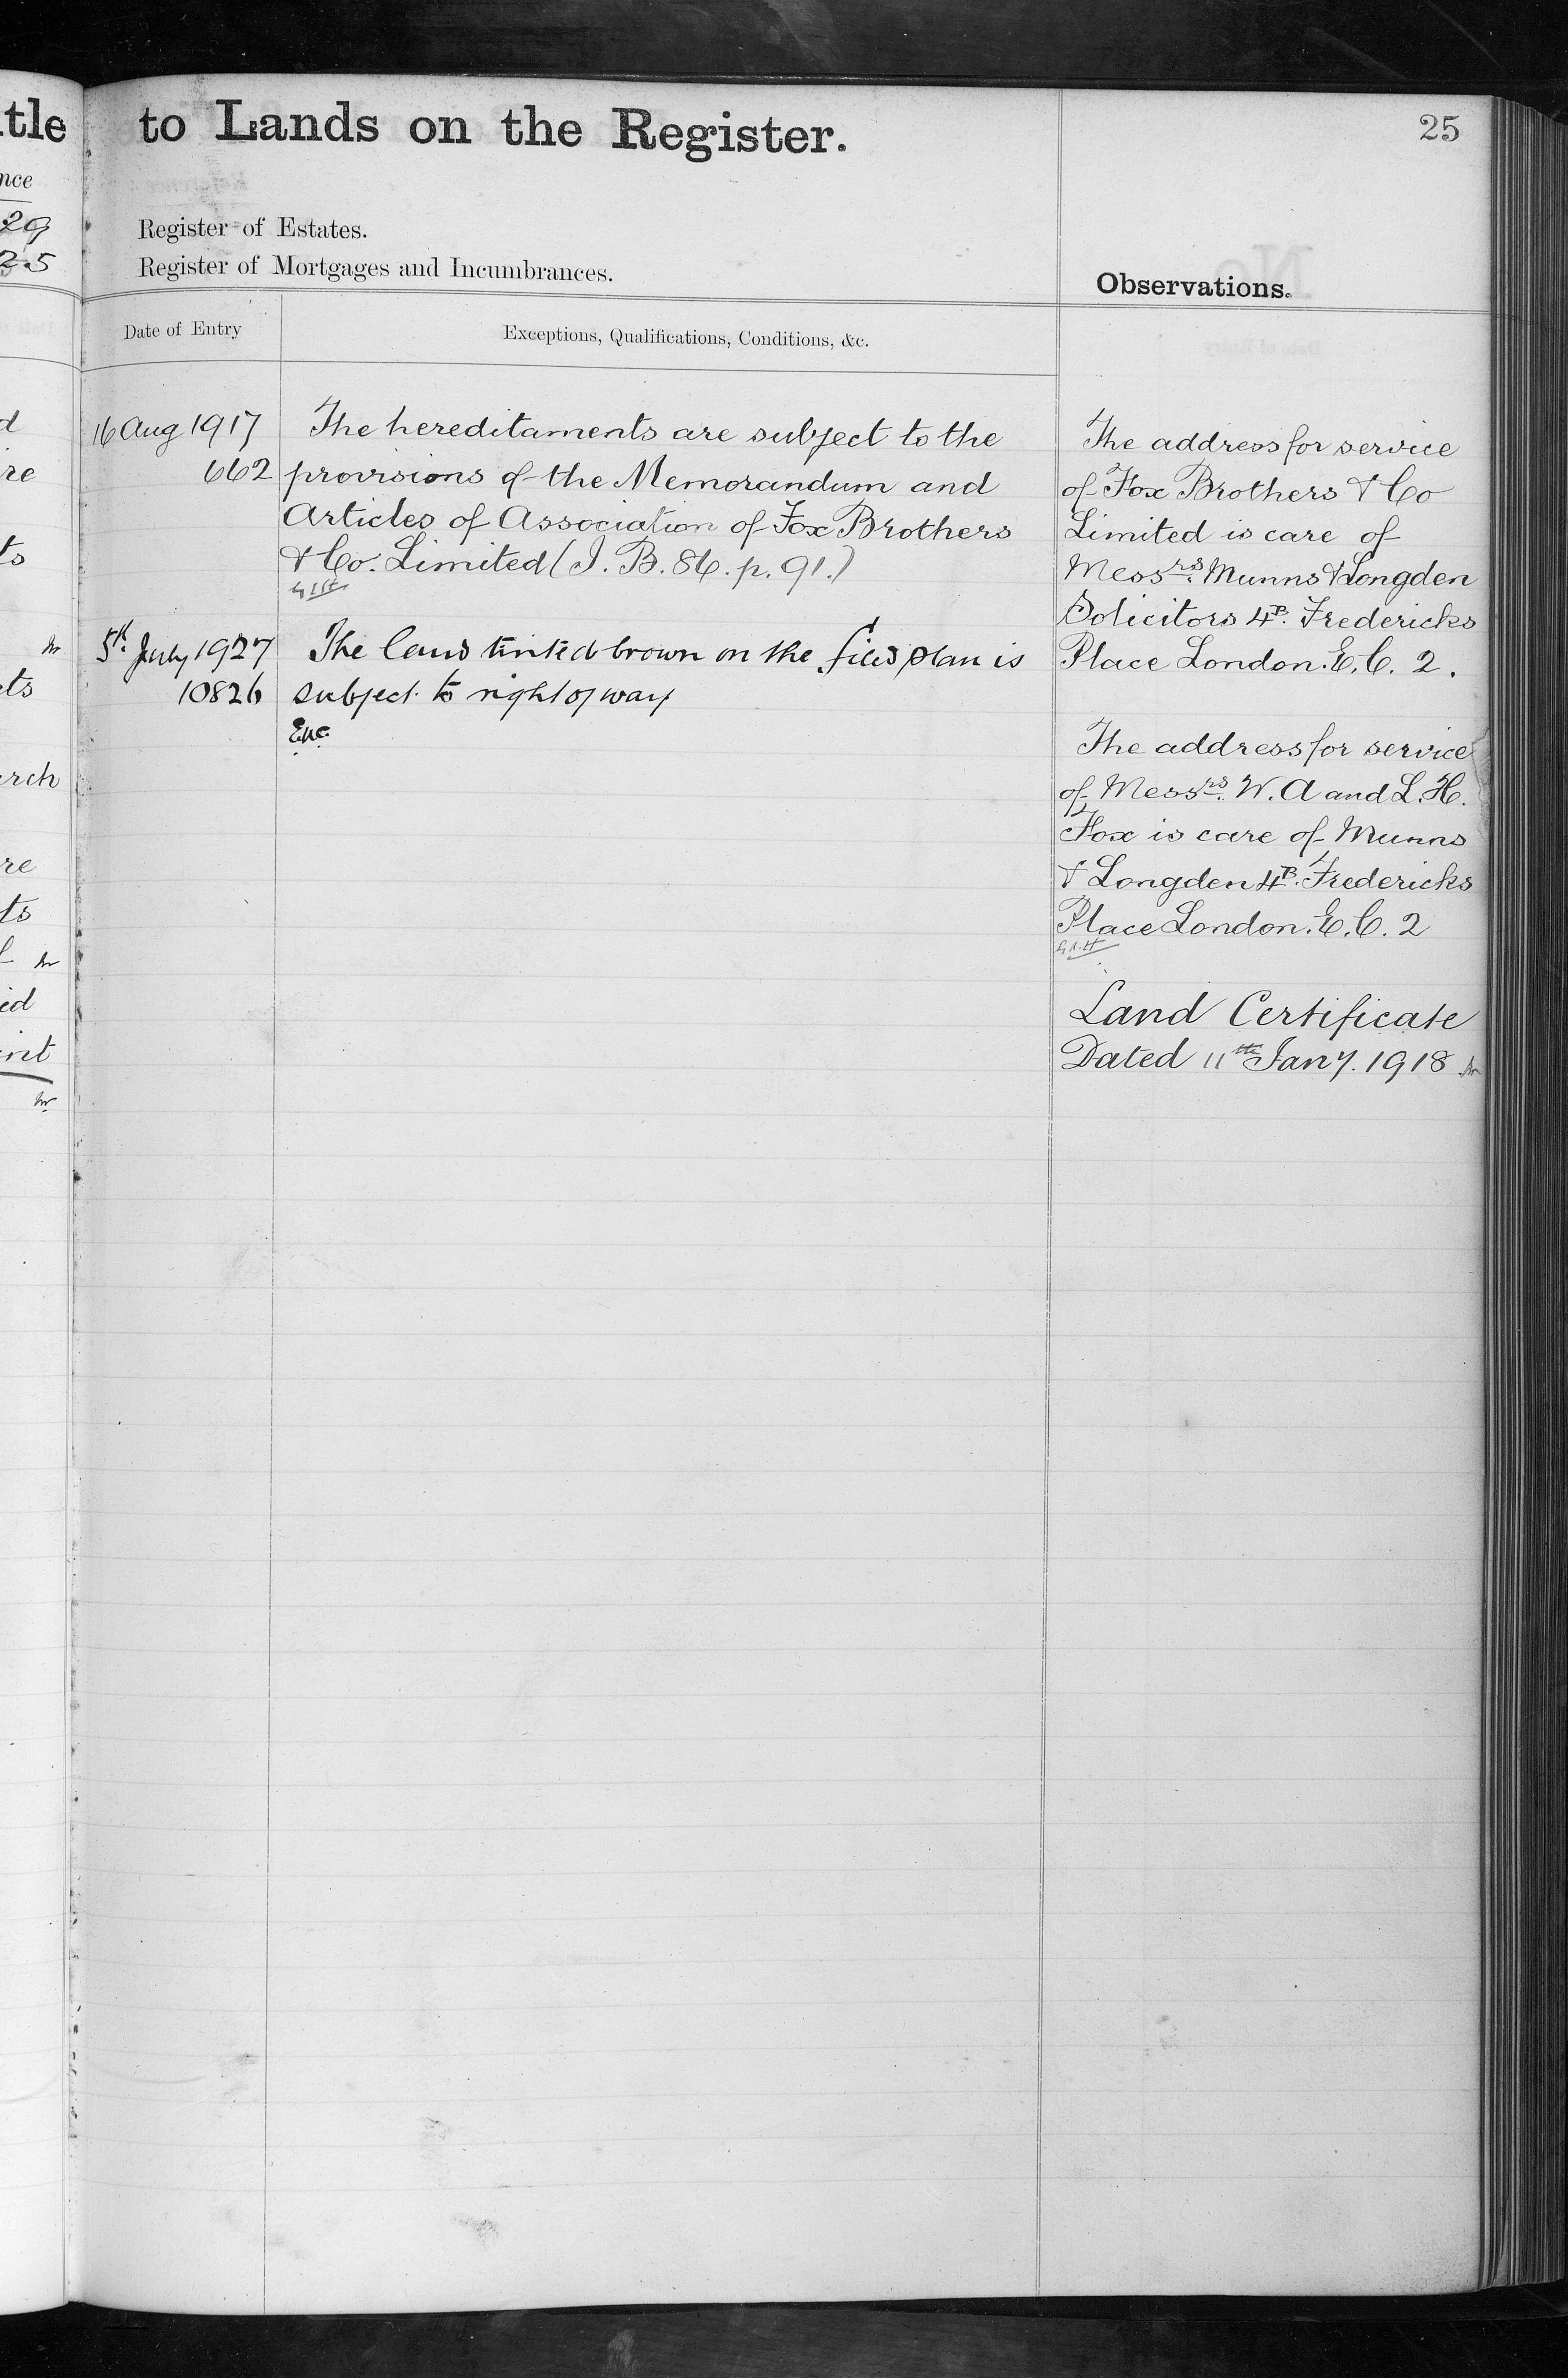 tle
nce
29
25
d
re
ts
ets
erch
re
ts
ed
to Lands on the Register.
25
Register of Estates.
Register of Mortgages and Incumbrances.
Observations.
Date of Entry
Exceptions, Qualifications, Conditions, &c.
16 Aug 1917
662
The hereditaments are subject to the
provisions of the Memorandum and
Articles of Association of Fox Brothers
& Co. Limited (I. B. 86. p. 91.)
5th July 1927
10826
The land tinted brown on the filed plan is
subject to right of way
The address for service
of Fox Brothers & Co
Limited is care of
Messrs. Munns & Longden
Solicitors 4B. Fredericks
Place London. E. C. 2.
The address for service
of Messrs. W. A and L. H.
Fox is care of Munns
& Longden 4B. Fredericks
Place London. E. C. 2
Land Certificate
Dated 11th Jany. 1918